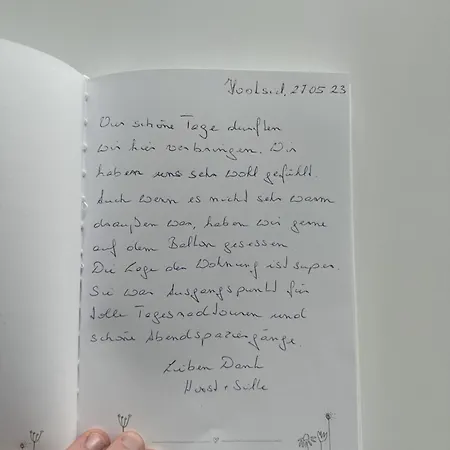 Hooksiel, 27.05.23
Vier schöne Tage durften
wir hier verbringen. Wir
haben uns sehr wohl gefühlt.
Auch wenn es nicht sehr warm
draußen war, haben wir gerne
auf dem Balkon gesessen
Die Lage der Wohnung ist super.
Sie war Ausgangspunkt für
tolle Tagesradtouren und
schöne Abendspaziergänge.
Lieben Dank
Horst +